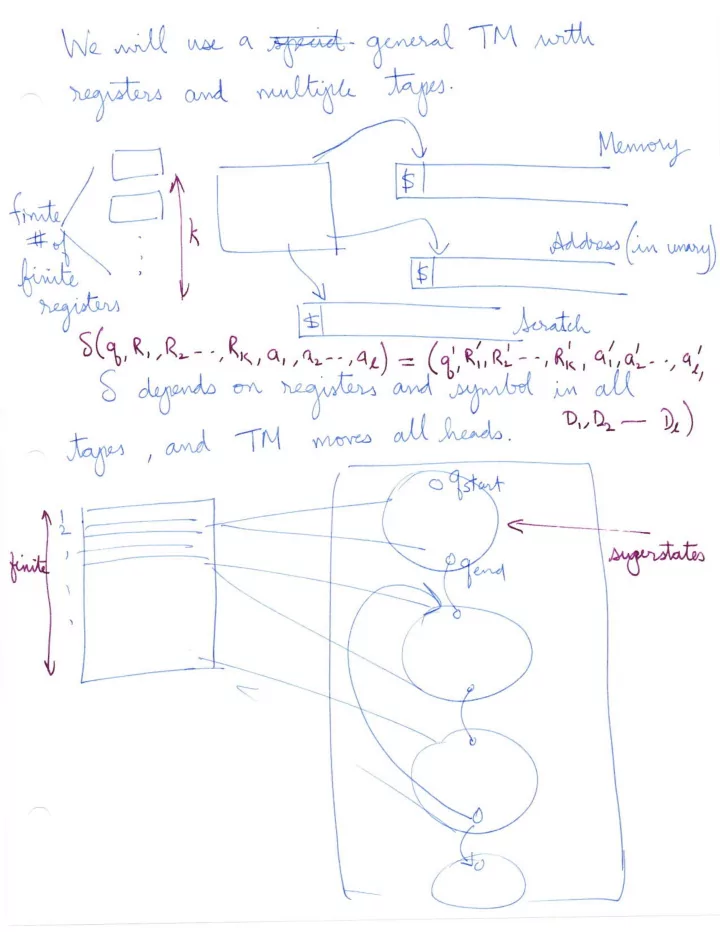 We will use a general TM with
registers and multiple tapes.
Memory
$
finite
# of
finite
registers
k
Address (in unary)
$
$
Scratch
δ(q, R₁, R₂ --, R_K, a₁, a₂ --, a_ℓ) = (q', R₁', R₂' --, R_K', a₁', a₂' --, a_ℓ',
D₁, D₂ — D_ℓ)
δ depends on registers and symbol in all
tapes, and TM moves all heads.
q_start
1
2
superstates
finite
q_end